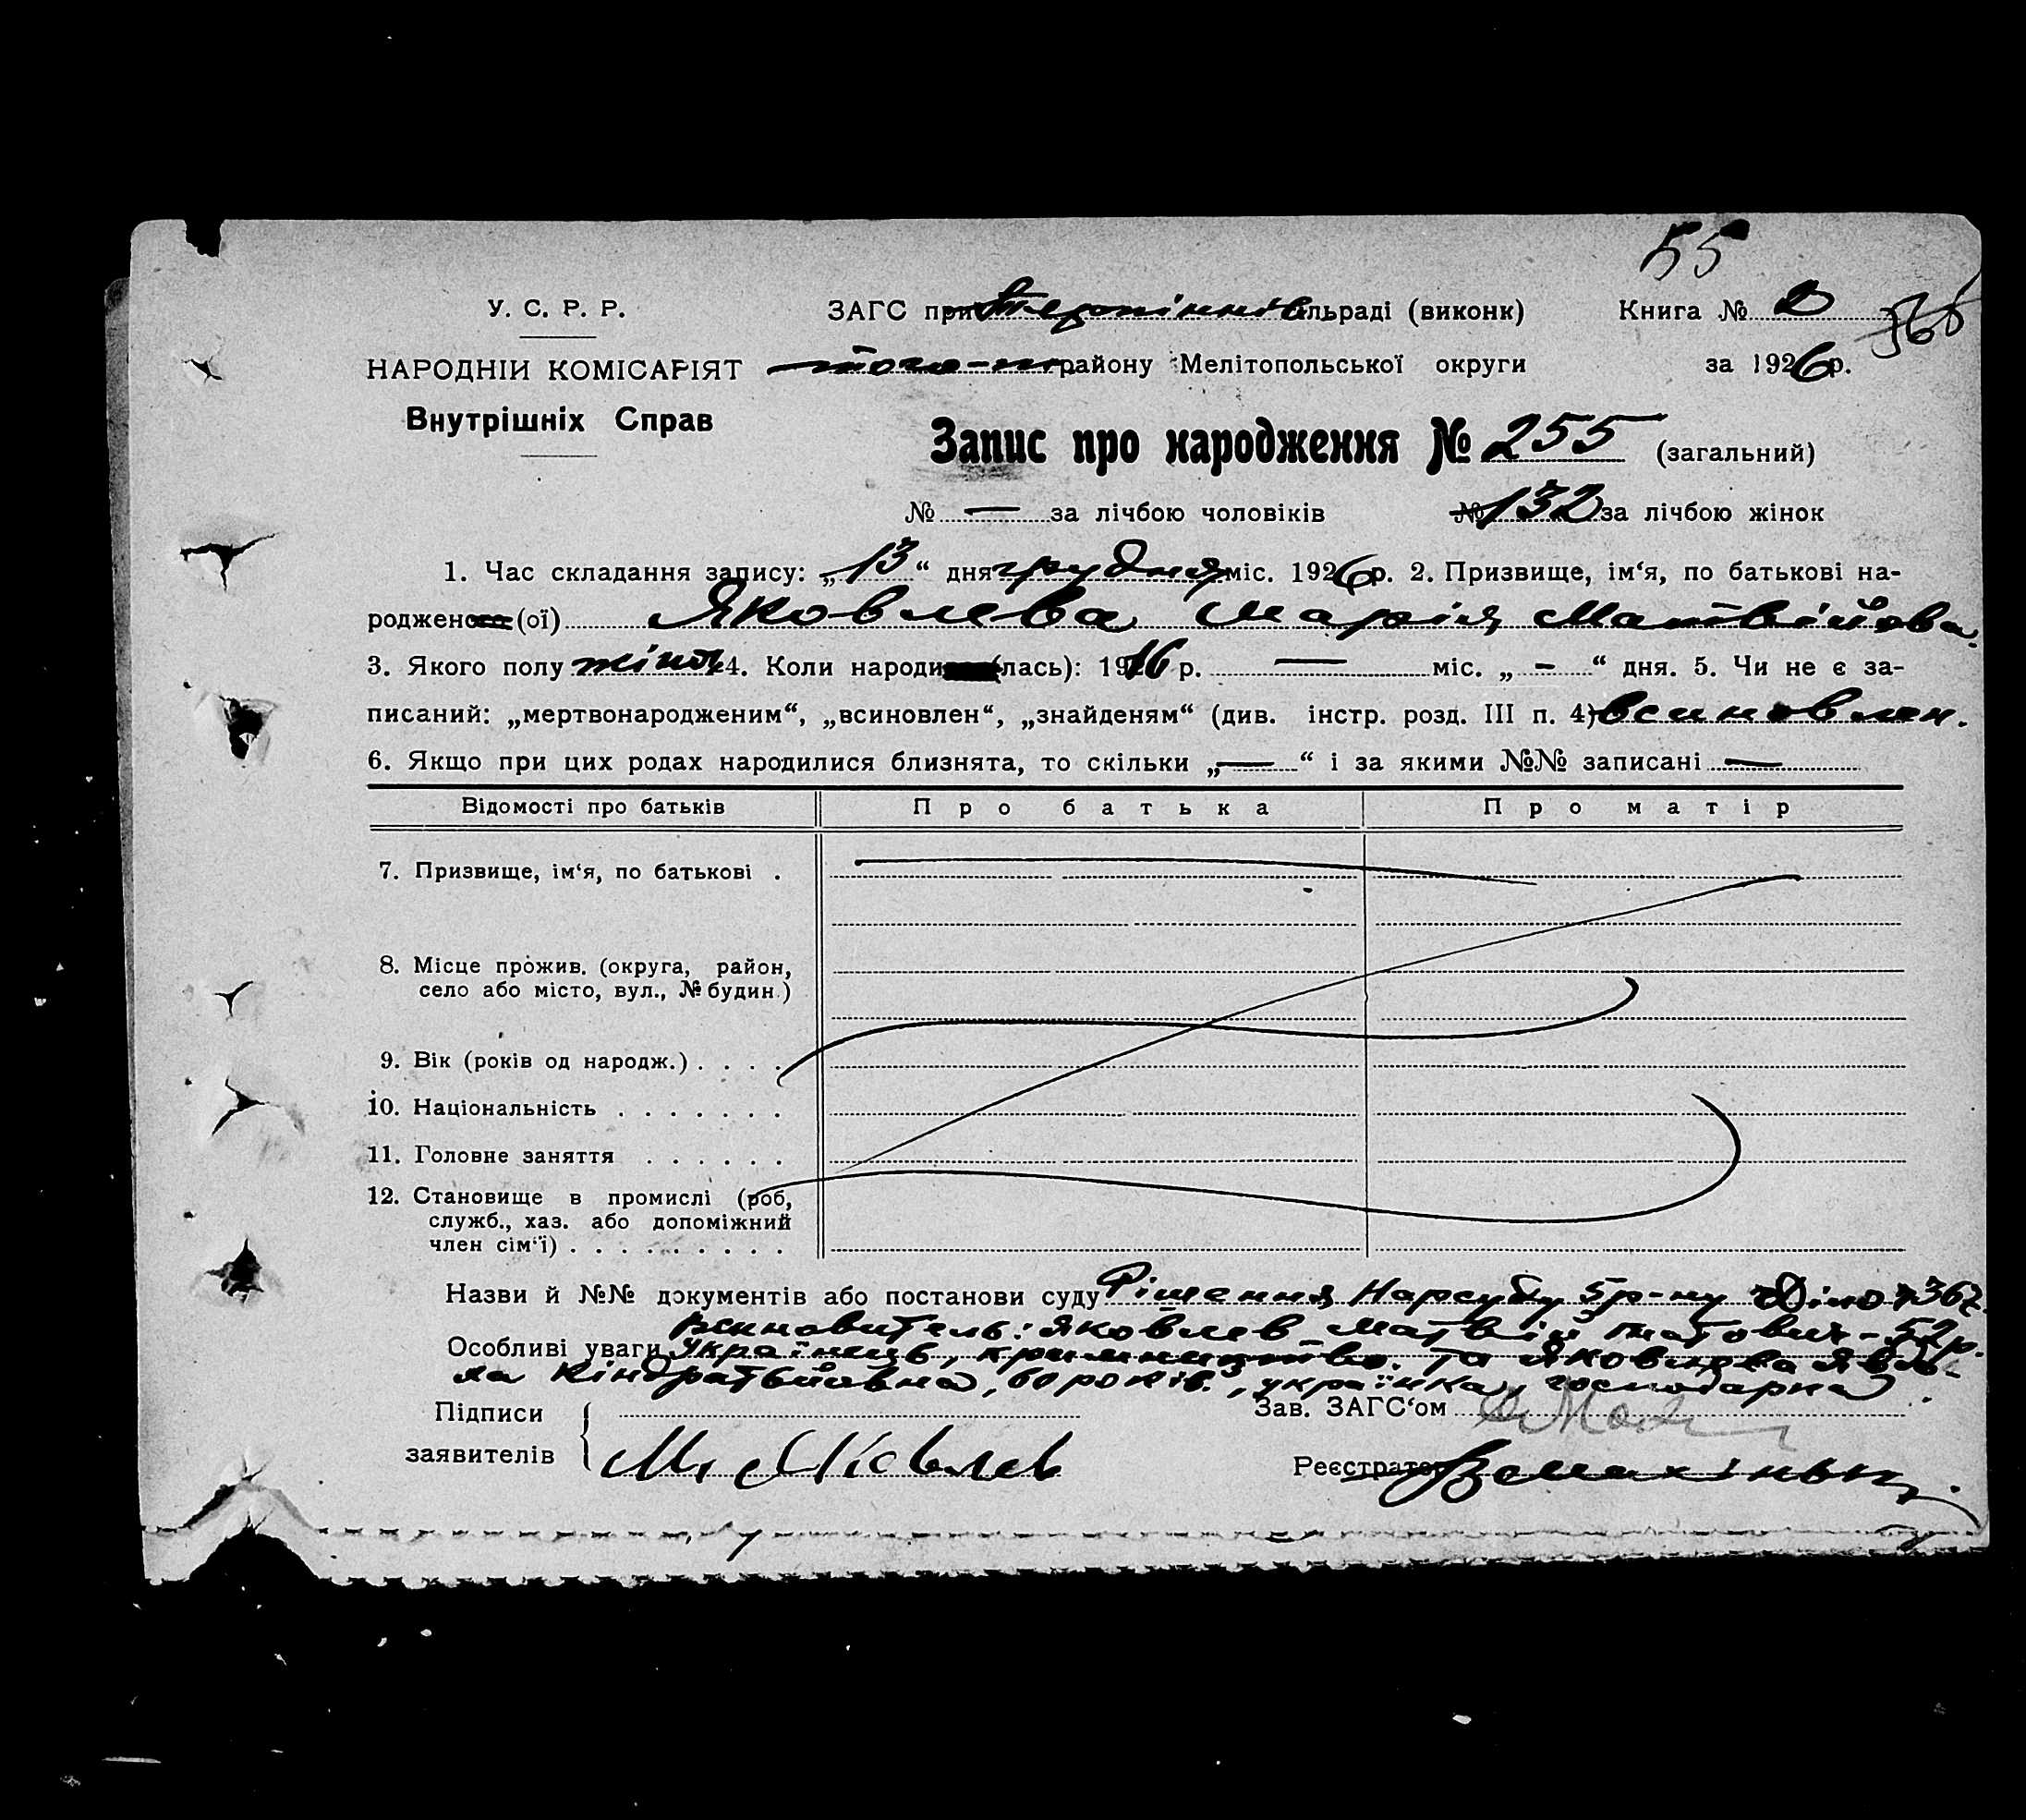 55
У. С. Р. Р. ЗАГС при Терпінню сільраді (виконк) Книга № 2
366
НАРОДНІЙ КОМІСАРІЯТ того-ж району Мелітопольської округи за 1926 р.
Внутрішніх Справ
Запис про народження № 255 (загальний)
№ — за лічбою чоловіків № 132 за лічбою жінок
1. Час складання запису: „13“ дня грудня міс. 1926 р. 2. Призвище, ім‘я, по батькові на-
родженого (ої) Яковлева Марія Матвійовна
3. Якого полу жіноч 4. Коли народи (лась): 1916 р. — міс. „ – “ дня. 5. Чи не є за-
писаний: „мертвонародженим“, „всиновлен“, „знайденям“ (див. інстр. розд. III п. 4) всиновлен.
6. Якщо при цих родах народилися близнята, то скільки „—“ і за якими №№ записані —
Відомості про батьків Про батька Про матір
7. Призвище, ім‘я, по батькові .
8. Місце прожив. (округа, район,
село або місто, вул., № будин.)
9. Вік (років од народж.) . . . .
10. Національність . . . . . . .
11. Головне заняття . . . . . .
12. Становище в промислі (роб,
служб., хаз. або допоміжний
член сім‘ї) . . . . . . . . .
Назви й №№ документів або постанови суду Рішення Нарсуду 5 р-ну Діло
Всиновитель: Яковлев Матвій - 52 р.
Особливі уваги Українець, та Яковлева Яв
Кіндратьйовна, 60 років, українка, господарка.
Підписи Зав. ЗАГС‘ом
заявителів М. Яковлев Реєстратор